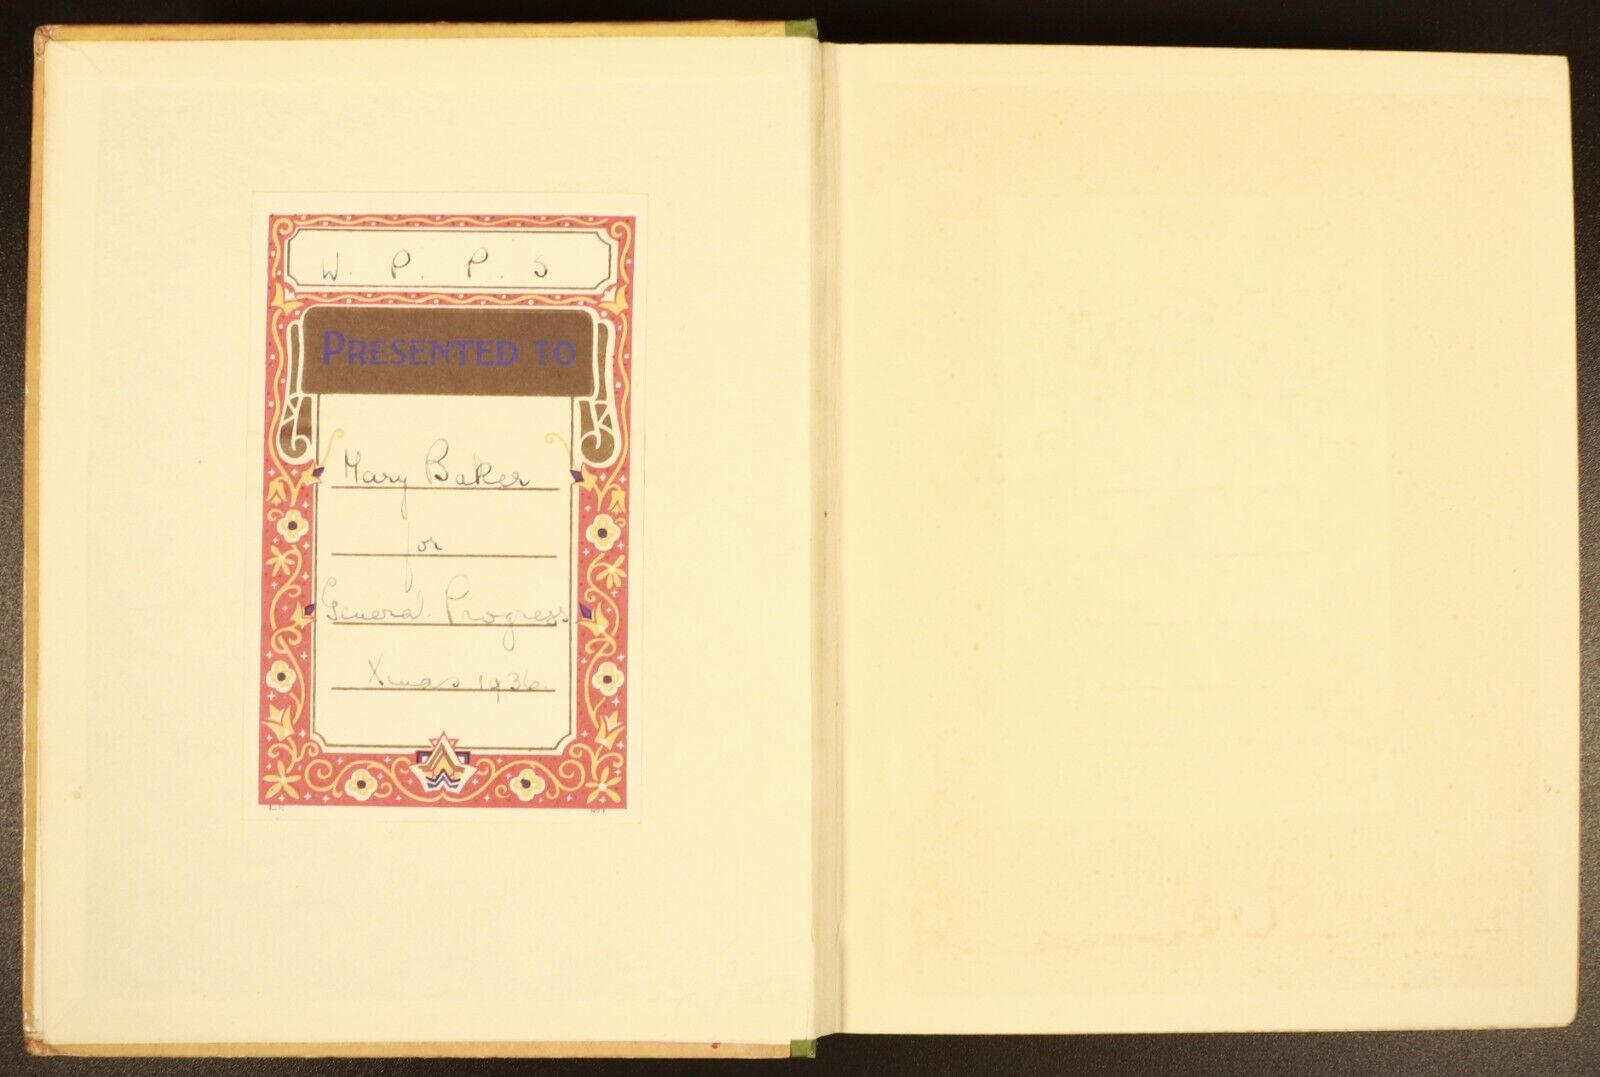 W. P. P. S
PRESENTED TO
Mary Baker
for
General Progress
Xmas 1936.